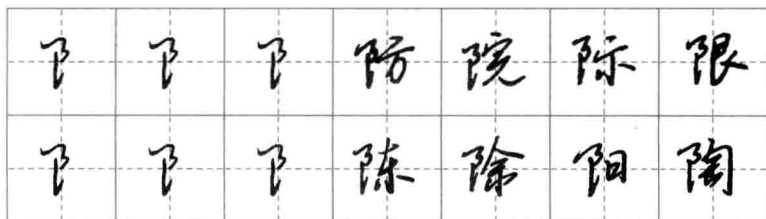 阝 阝 阝 防 院 际 限
阝 阝 阝 陈 除 阳 陶